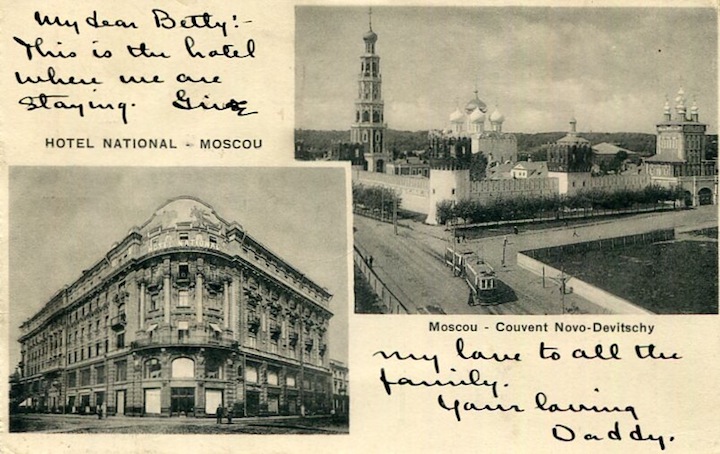 My dear Betty!-
This is the hotel
where we are
staying. Give
HOTEL NATIONAL - MOSCOU
Moscou - Couvent Novo-Devitschy
my love to all the
family.
Your loving
Daddy.